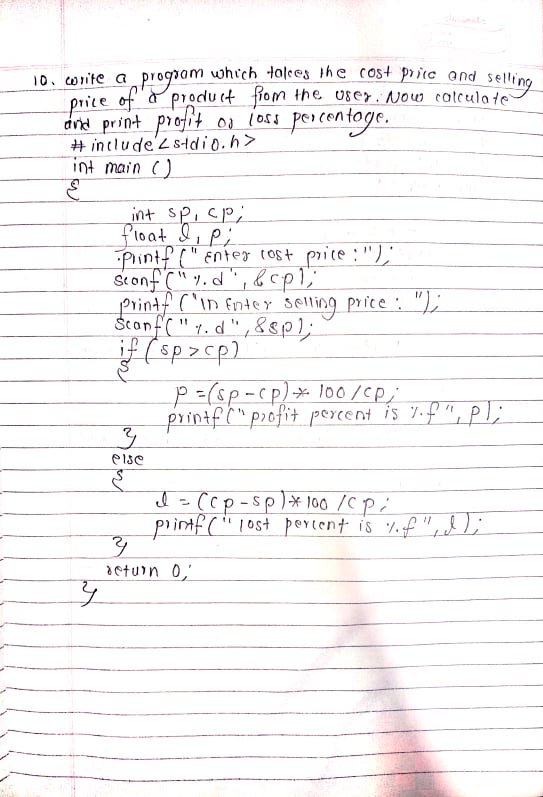 10. write a program which takes the cost price and selling
price of a product from the user. Now calculate
and print profit or loss percentage.
# include <stdio.h>
int main ()
{
int sp, cp;
float l, p;
printf (" Enter cost price :");
scanf (" %d", &cp);
printf ("\n Enter selling price : ");
scanf (" %d", &sp);
if (sp > cp)
{
p = (sp - cp) * 100 / cp;
printf (" profit percent is %f ", p);
}
else
{
l = (cp - sp) * 100 / cp;
printf (" lost percent is %f ", l);
}
return 0;
}